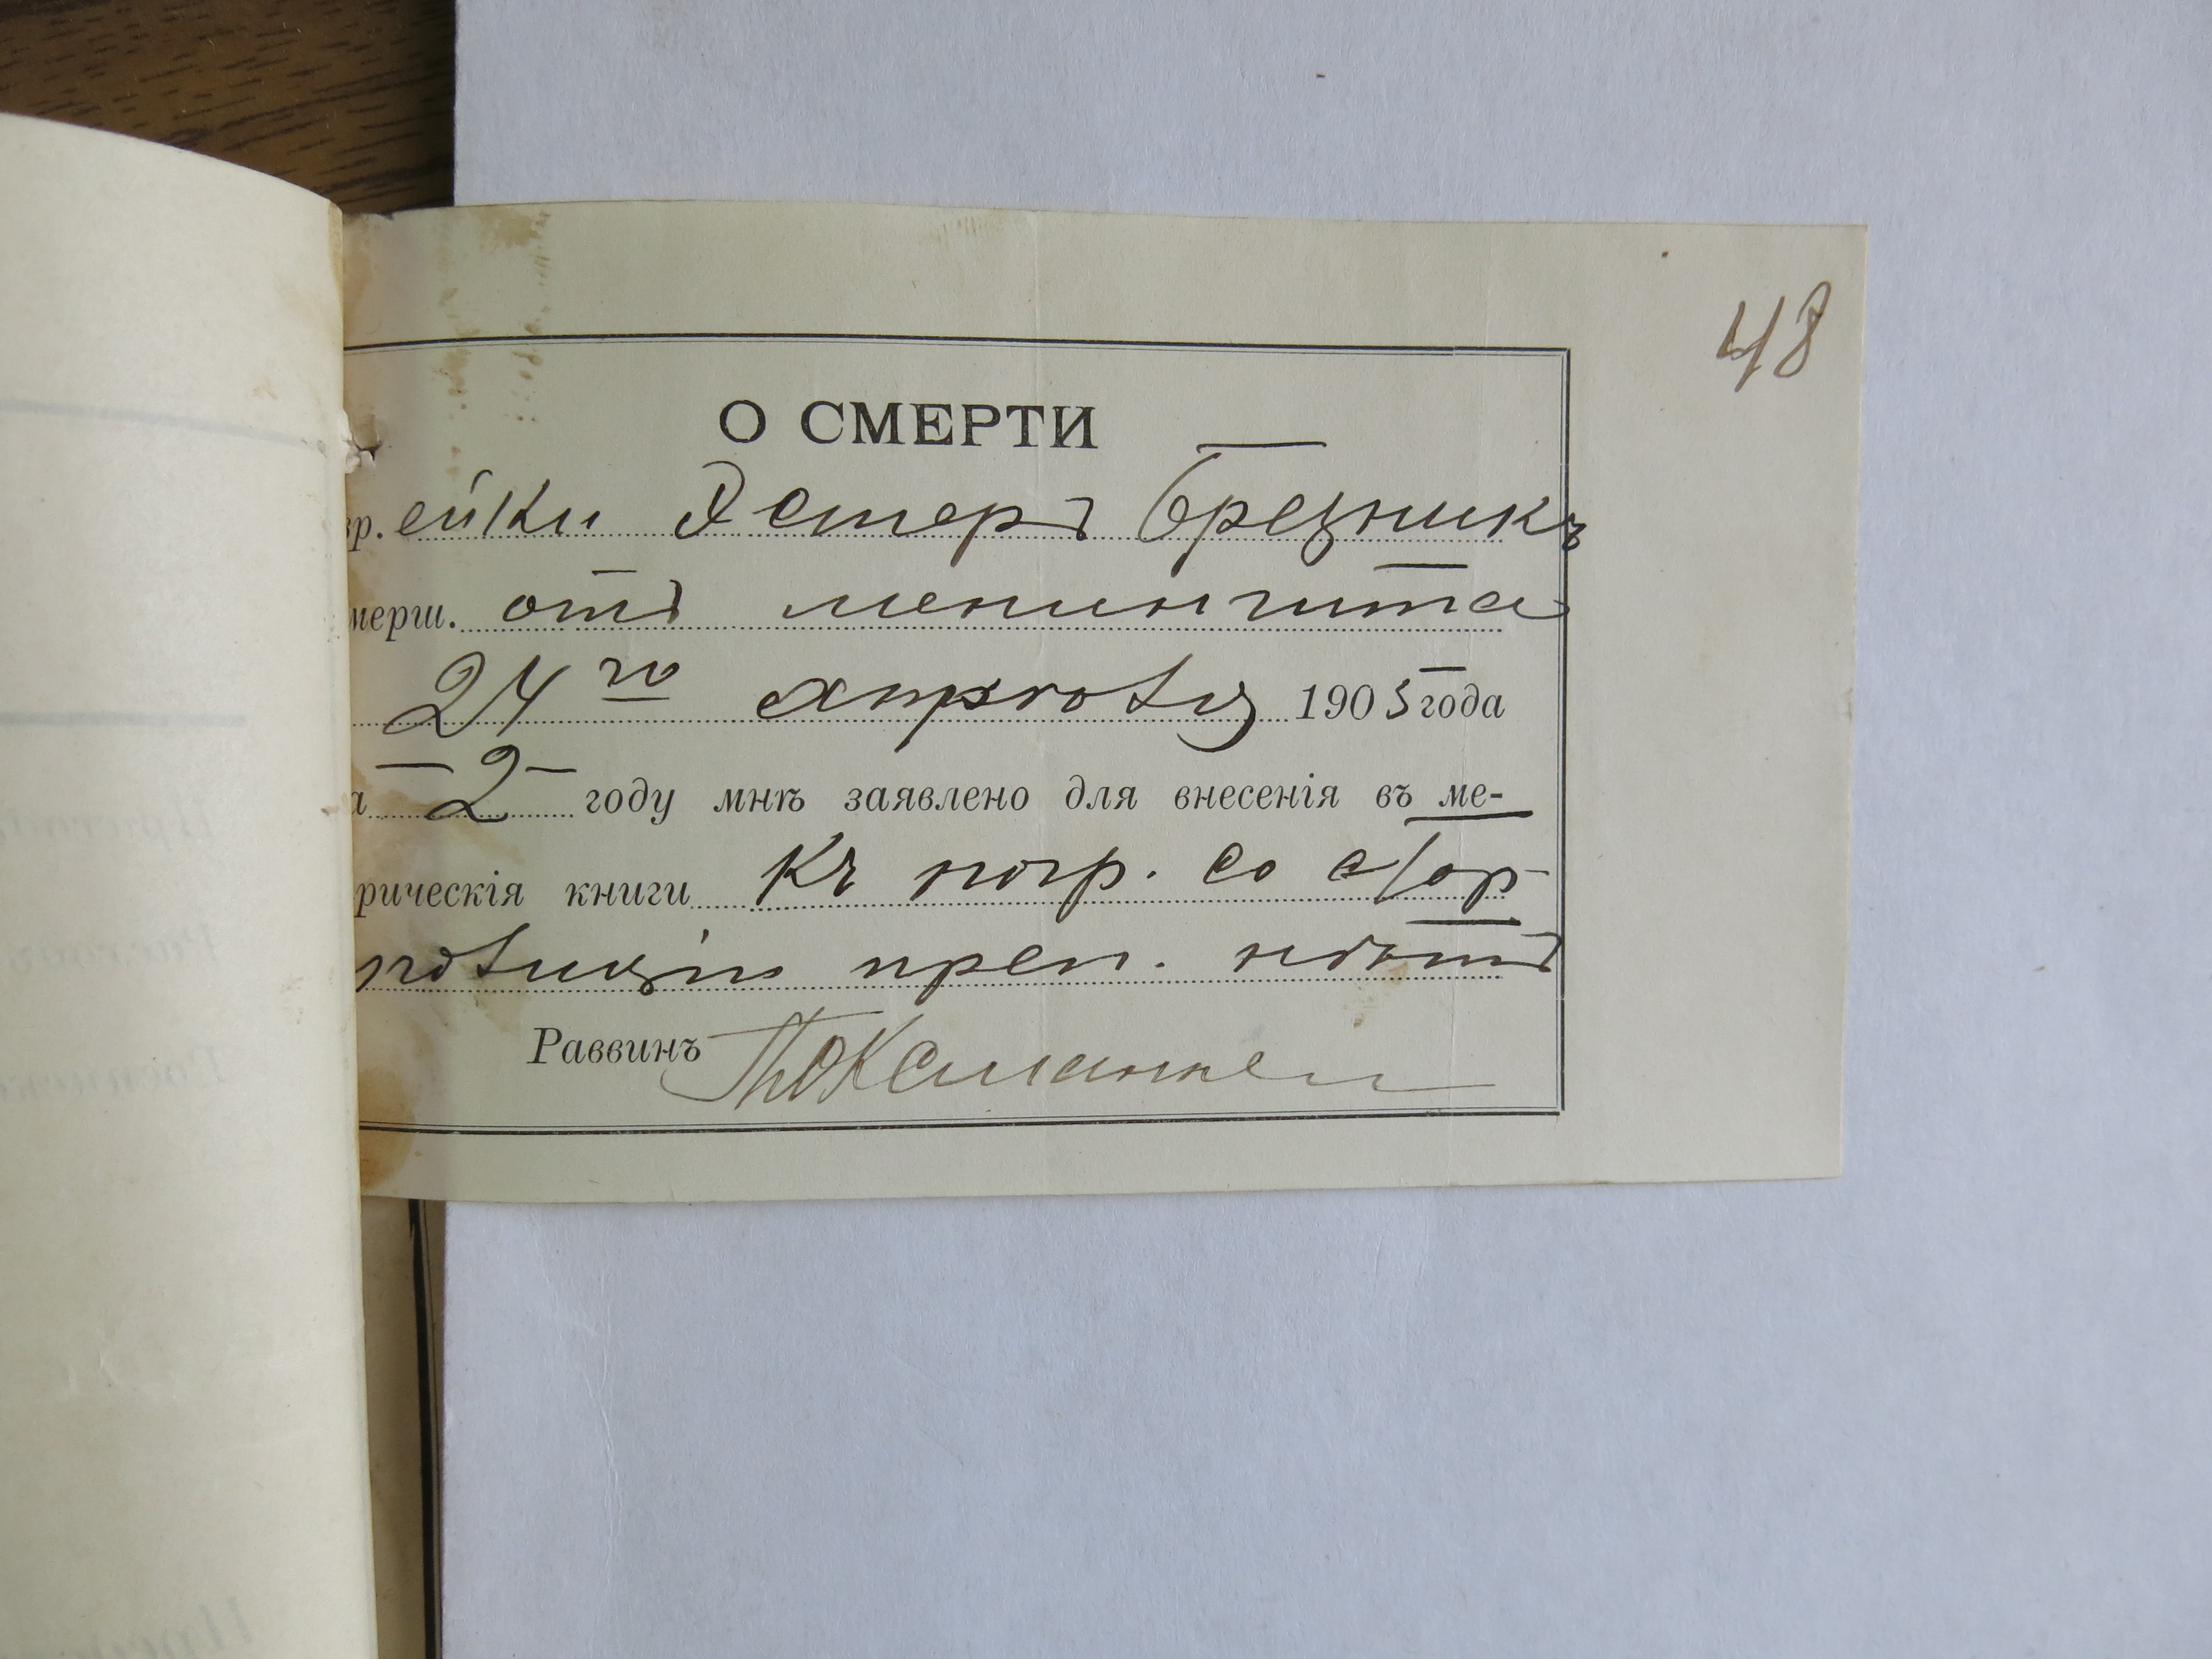 48
О СМЕРТИ
вр. ейки Эстеръ Брезникъ
мерш. отъ менингита
24го апрѣля 1905 года
а 2 году мнѣ заявлено для внесенія въ ме-
рическія книги къ погр. со стор
полиціи преп. нѣтъ
Раввинъ